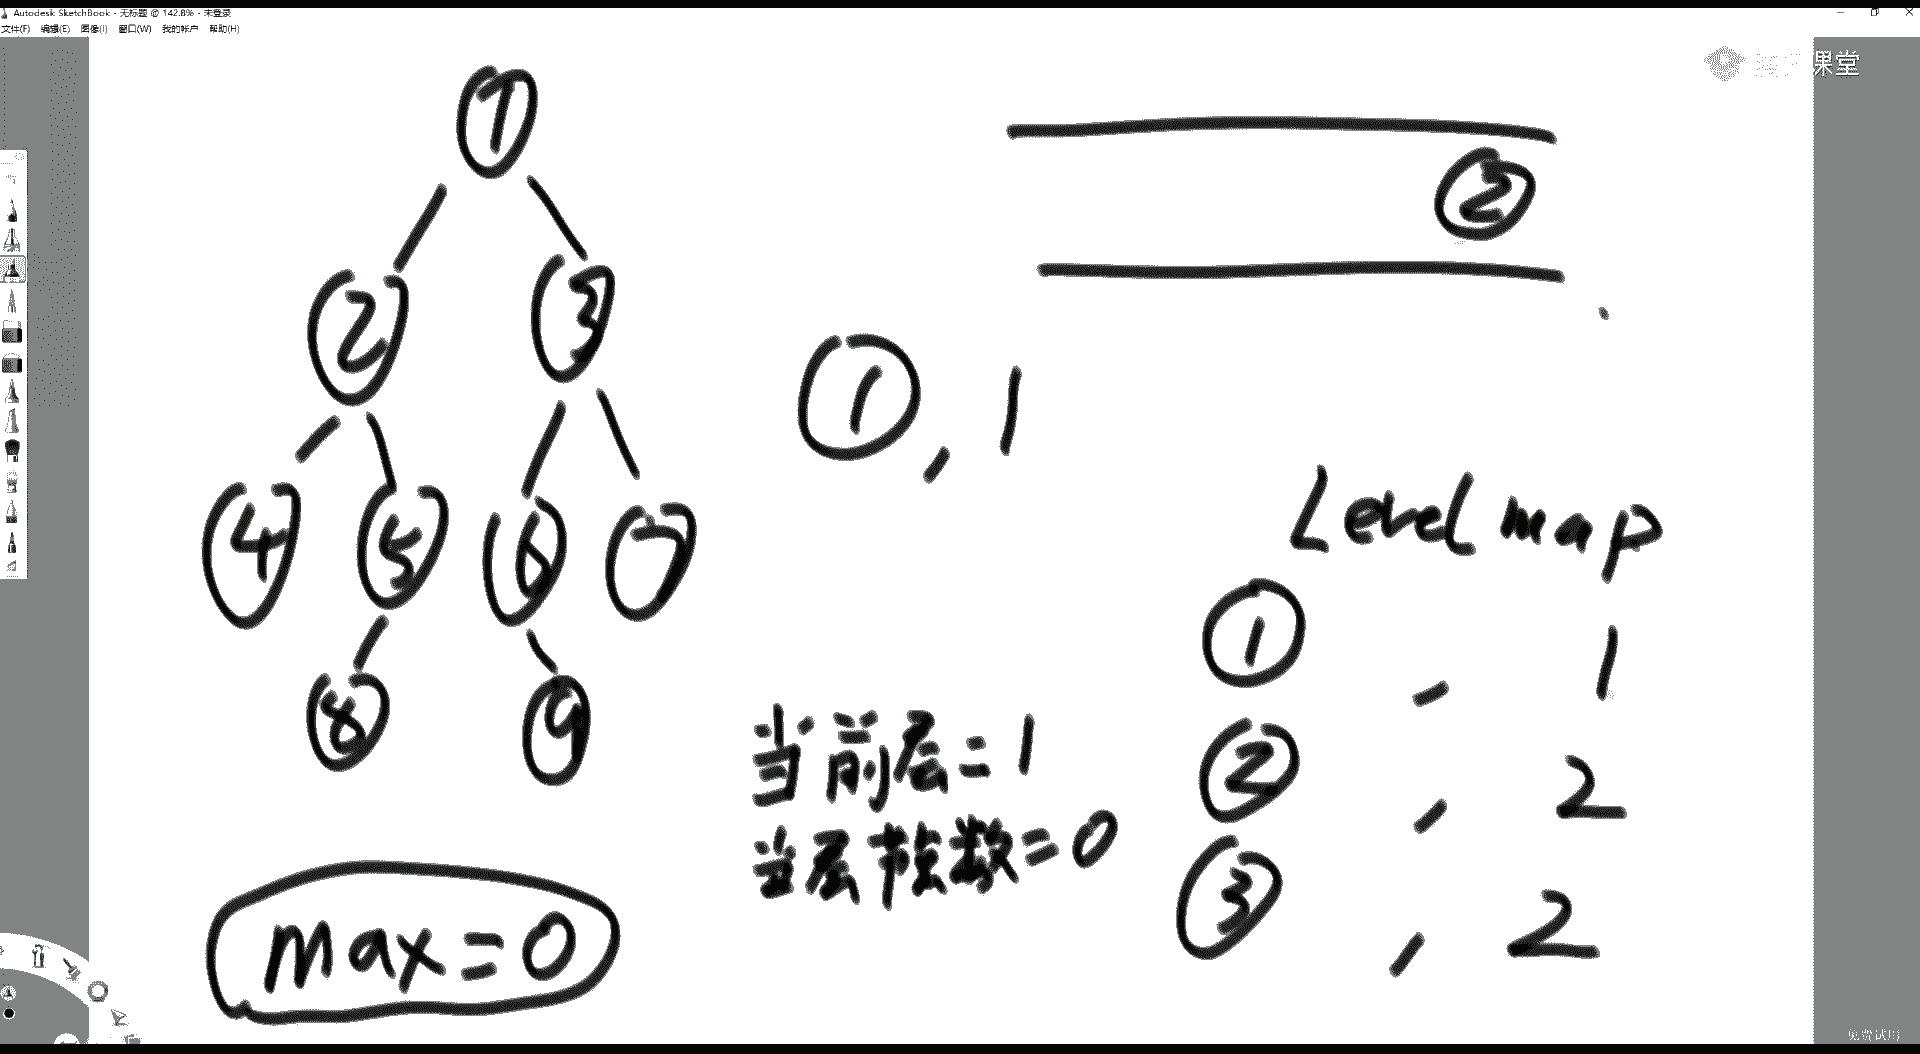 Autodesk SketchBook - 无标题 @ 142.8% - 未登录
文件(F) 编辑(E) 图像(I) 窗口(W) 我的帐户 帮助(H)
课堂
1
2
2 3
1, 1
4 5 6 7
Level map
1, 1
8 9
当前层=1
2, 2
当层节点数=0
3, 2
max=0
免费试用